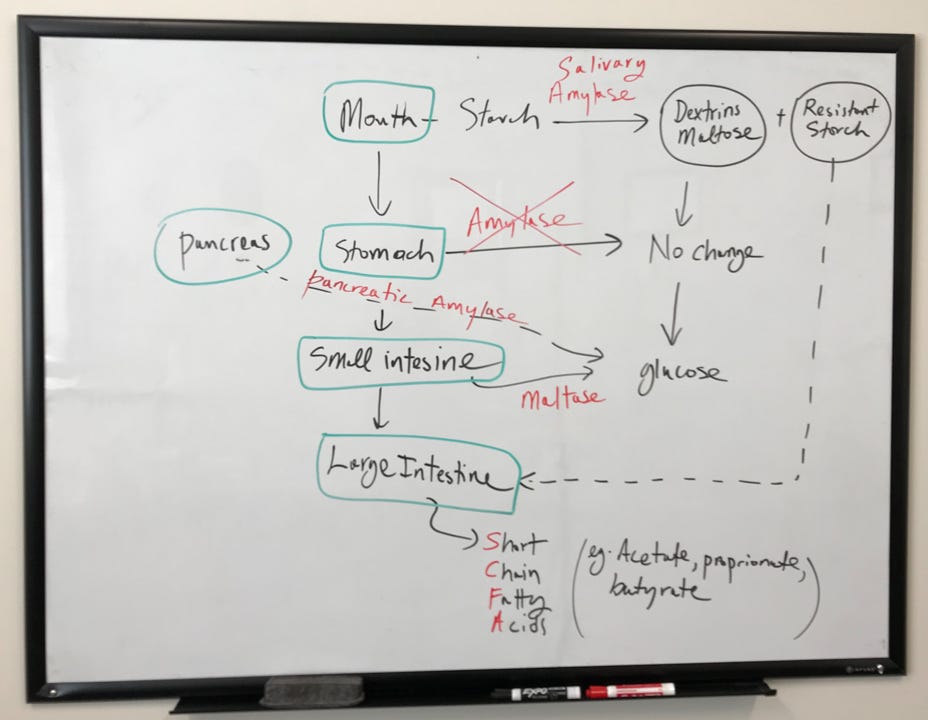 Salivary
Amylase
Mouth - Starch
Dextrins
Maltose
+
Resistant
Starch
Amylase
pancreas
Stomach
No change
pancreatic Amylase
Small intesine
glucose
Maltase
Large Intestine
Short
Chain
Fatty
Acids
(eg. Acetate, proprionate,
butyrate)
EXPO